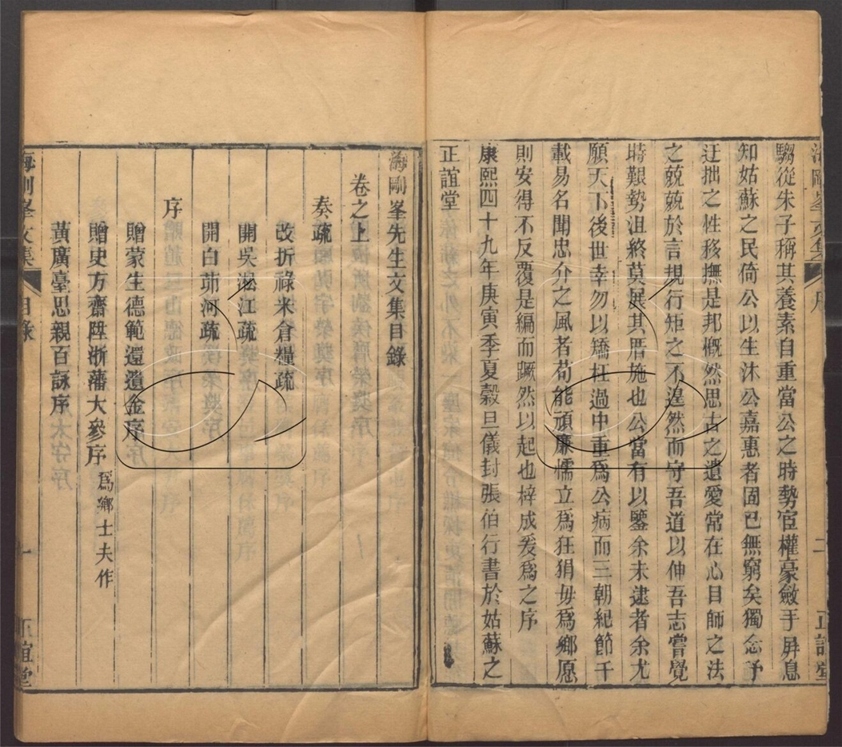 海剛峯文集 序 二 正誼堂
騶從朱子稱其養素自重當公之時勢宦權豪斂手屏息
知姑蘇之民倚公以生沐公嘉惠者固已無窮矣獨念予
迂拙之性移撫是邦概然思古之遺愛常在心目師之法
之兢兢於言規行矩之不遑然而守吾道以伸吾志嘗覺
時艱勢沮終莫展其厝施也公當有以鑒余未逮者余尤
願天下後世幸勿以矯枉過中重爲公病而三朝紀節千
載易名聞忠介之風者苟能頑廉懦立爲狂狷毋爲鄉愿
則安得不反覆是編而蹶然以起也梓成爰爲之序
康熙四十九年庚寅季夏穀旦儀封張伯行書於姑蘇之
正誼堂
海剛峯先生文集目錄
卷之上
奏疏
改折祿米倉糧疏
開吳淞江疏
開白茆河疏
序
贈蒙生德範還遺金序
贈史方齋陞浙藩大參序 爲鄉士夫作
黃廣臺思親百詠序
海剛峯文集 目錄 一 正誼堂